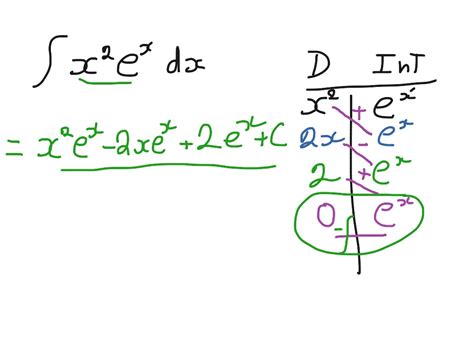 ∫ x² eˣ dx
= x² eˣ - 2x eˣ + 2 eˣ + C
D InT
x² + eˣ
2x - eˣ
2 + eˣ
0 - ∫ eˣ